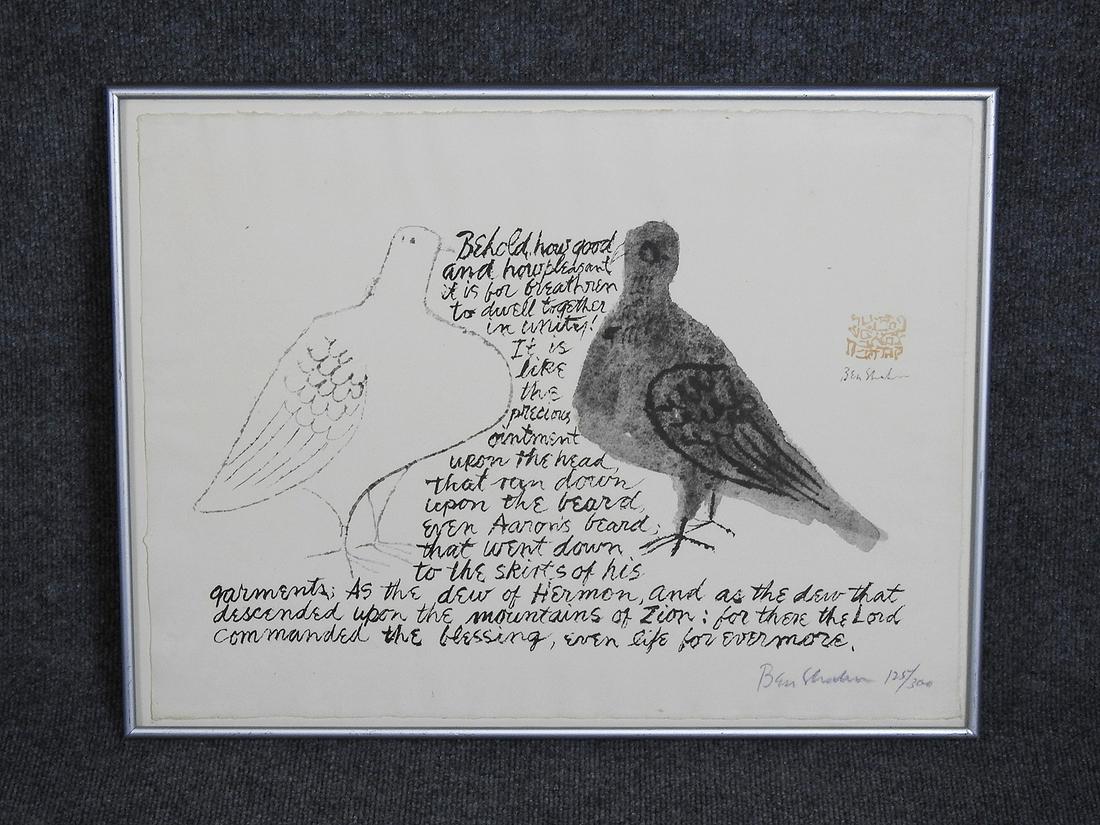 Behold, how good
and how pleasant
it is for breathren
to dwell together
in unity!
It is
like
the
precious
ointment
upon the head,
that ran down
upon the beard,
even Aaron's beard;
that went down
to the skirts of his
garments; As the dew of Hermon, and as the dew that
descended upon the mountains of Zion: for there the Lord
commanded the blessing, even life for evermore.
Ben Shahn
Ben Shahn 125/300